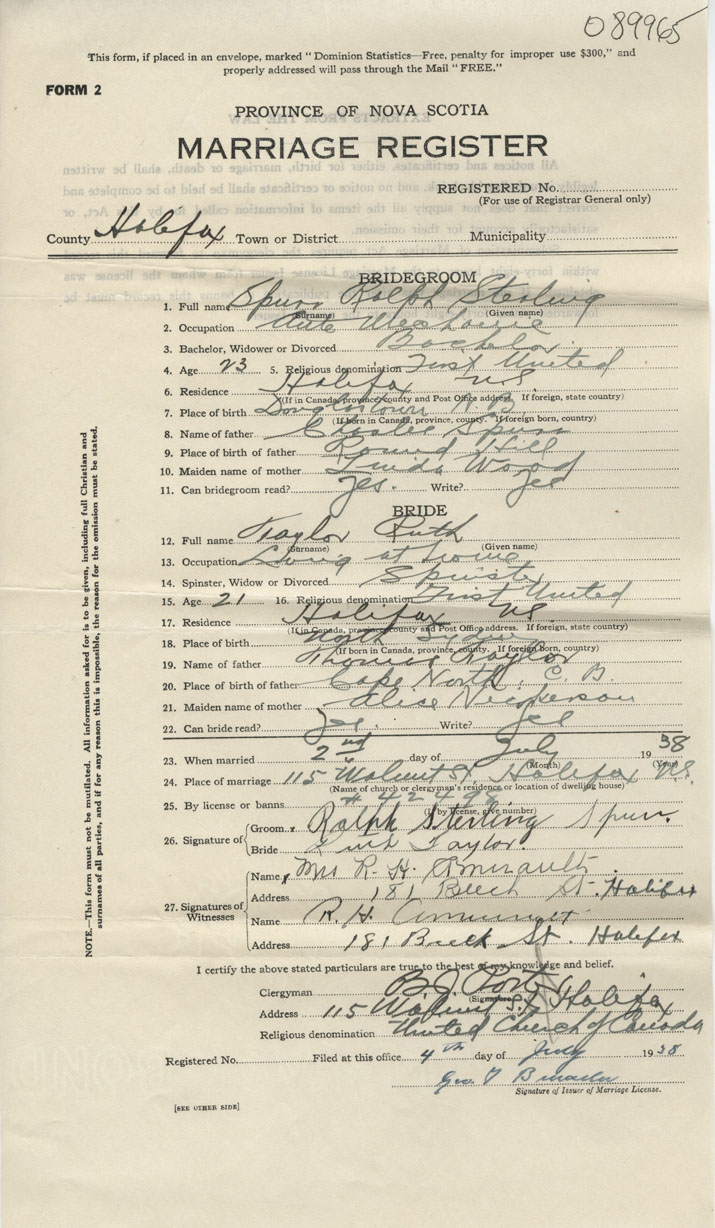 089965
This form, if placed in an envelope, marked "Dominion Statistics—Free, penalty for improper use $300," and
properly addressed will pass through the Mail "FREE."
FORM 2
PROVINCE OF NOVA SCOTIA
MARRIAGE REGISTER
REGISTERED No.
(For use of Registrar General only)
County Halifax Town or District Municipality
BRIDEGROOM
1. Full name Spurr Ralph Sterling
(Surname) (Given name)
2. Occupation Auto Mechanic
3. Bachelor, Widower or Divorced Bachelor
4. Age 23 5. Religious denomination First United
6. Residence Halifax NS
(If in Canada, province, county and Post Office address. If foreign, state country)
7. Place of birth Douglastown N.B.
(If born in Canada, province, county. If foreign born, country)
8. Name of father Charles Spurr
9. Place of birth of father Round Hill
10. Maiden name of mother Linda Wood
11. Can bridegroom read? Yes. Write? Yes
BRIDE
12. Full name Taylor Ruth
(Surname) (Given name)
13. Occupation Living at home
14. Spinster, Widow or Divorced Spinster
15. Age 21 16. Religious denomination First United
17. Residence Halifax NS
(If in Canada, province, county and Post Office address. If foreign, state country)
18. Place of birth North Sydney
(If born in Canada, province, county. If foreign born, country)
19. Name of father Thomas Taylor
20. Place of birth of father Cape North, C. B.
21. Maiden name of mother Alice
22. Can bride read? Yes. Write? Yes
23. When married 2nd day of July 1938
(Month) (Year)
24. Place of marriage 115 Walnut St, Halifax N.S.
(Name of church or clergyman's residence or location of dwelling house)
25. By license or banns # 42498
(If by license, give number)
26. Signature of Groom x Ralph Sterling Spurr.
Bride Ruth Taylor
27. Signatures of Witnesses
Name x Mrs R. H. Amirault
Address 181 Beech St. Halifax
Name R. H. Amirault
Address 181 Beech St. Halifax
I certify the above stated particulars are true to the best of my knowledge and belief.
Clergyman B J Porter
(Signature)
Address 115 Walnut St Halifax
Religious denomination United Church of Canada
Registered No. Filed at this office 4th day of July 1938
Geo.
Signature of Issuer of Marriage License.
[SEE OTHER SIDE]
NOTE.—This form must not be mutilated. All information asked for is to be given, including full Christian and
surnames of all parties, and if for any reason this is impossible, the reason for the omission must be stated.